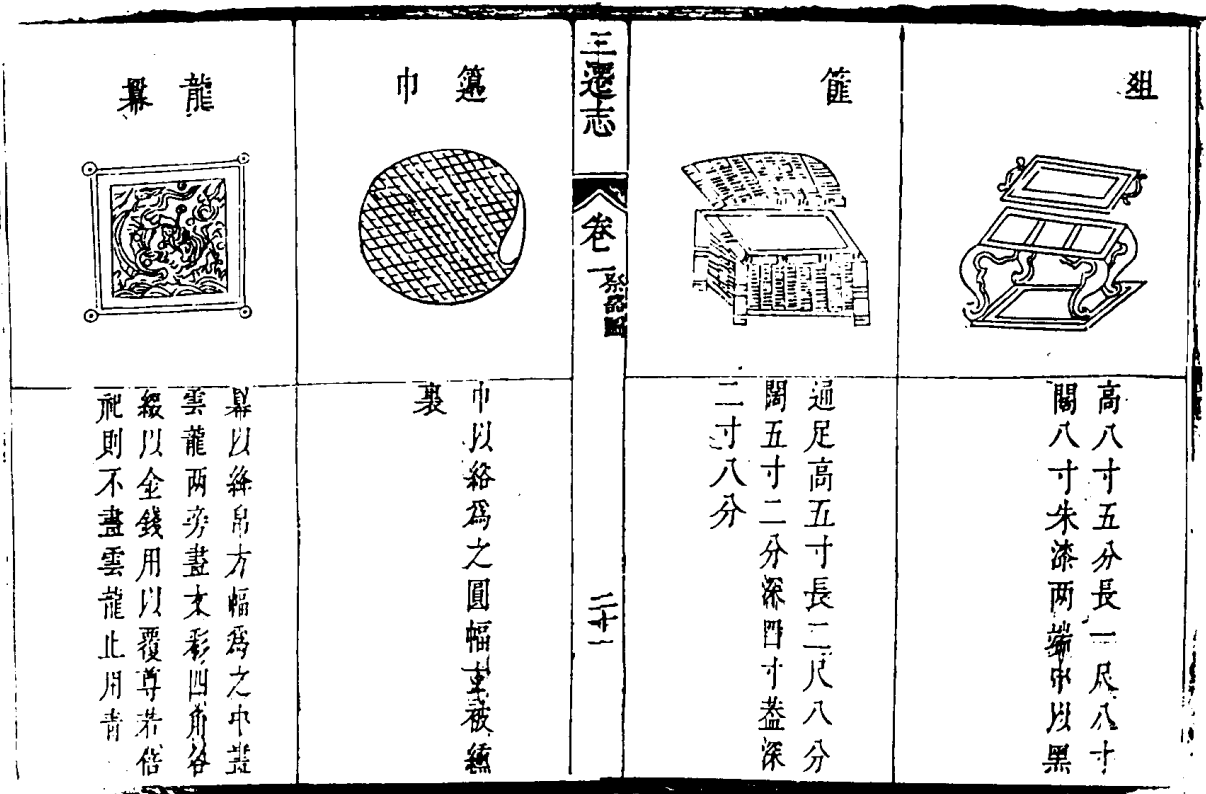 俎
高八寸五分長一尺八寸
闊八寸朱漆两端中以黑
篚
通足高五寸長二尺八分
闊五寸二分深四寸葢深
二寸八分
三遷志
卷一
祭器圖
二十一
籩巾
巾以綌爲之圓幅玄被纁
裏
龍冪
冪以絲帛方幅爲之中畫
雲龍两旁畫文彩四角各
綴以金錢用以覆尊若
祀則不畫雲龍止用青